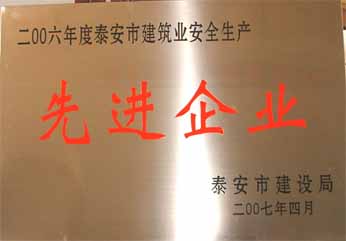 二00六年度泰安市建筑业安全生产
先进企业
泰安市建设局
二00七年四月